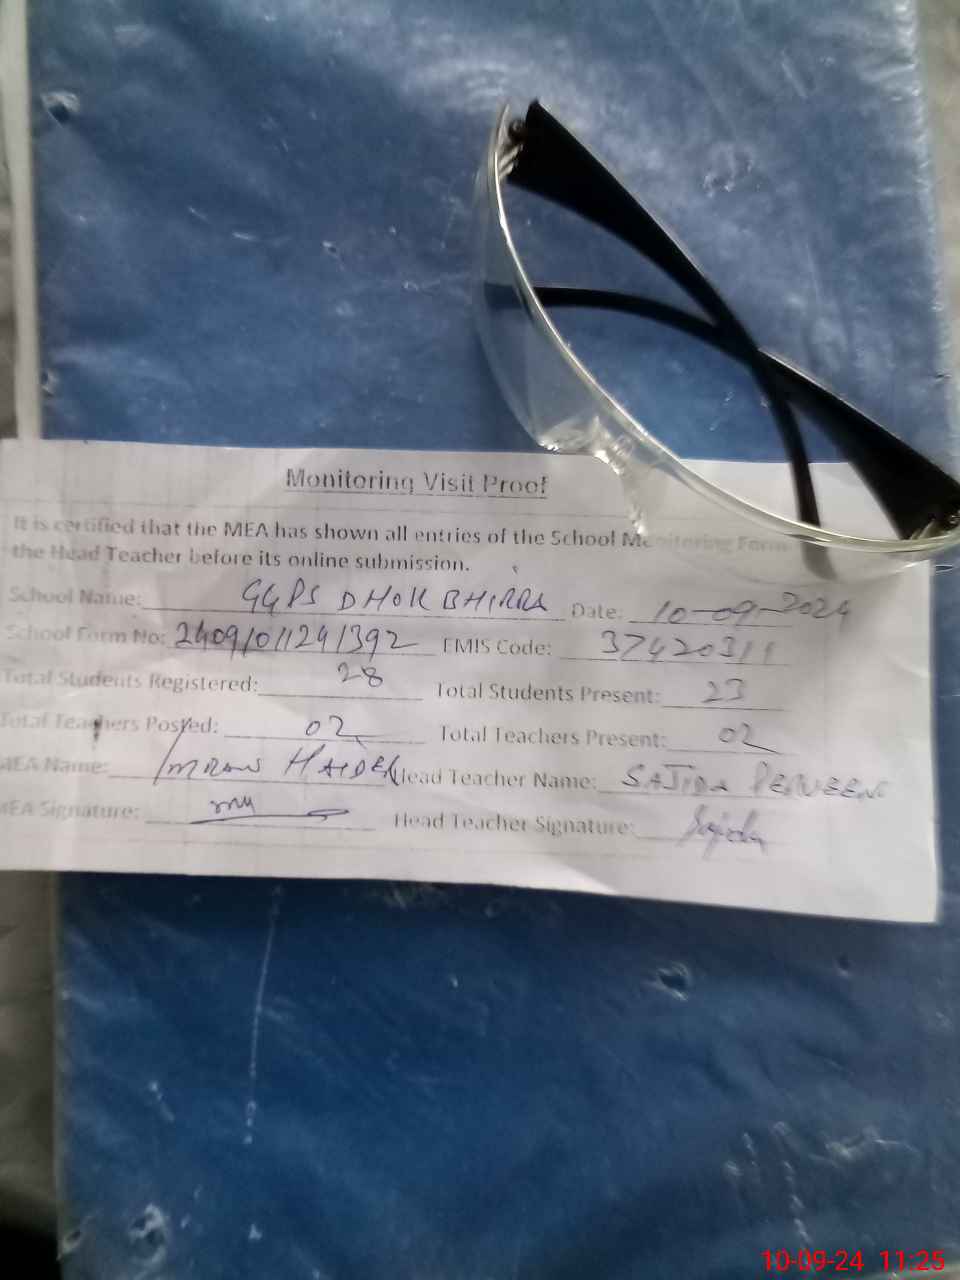 Monitoring Visit Proof
It is certified that the MEA has shown all entries of the School Monitoring Form
the Head Teacher before its online submission.
School Name: GGPS DHOK BHIRRA Date: 10-09-2024
School Form No: 2409/011241392 EMIS Code: 37420311
Total Students Registered: 28 Total Students Present: 23
Total Teachers Posted: 02 Total Teachers Present: 02
MEA Name: IMRAN HAIDER Head Teacher Name: SAJIDA PERVEEN
MEA Signature: Head Teacher Signature: Sajida
10-09-24 11:25